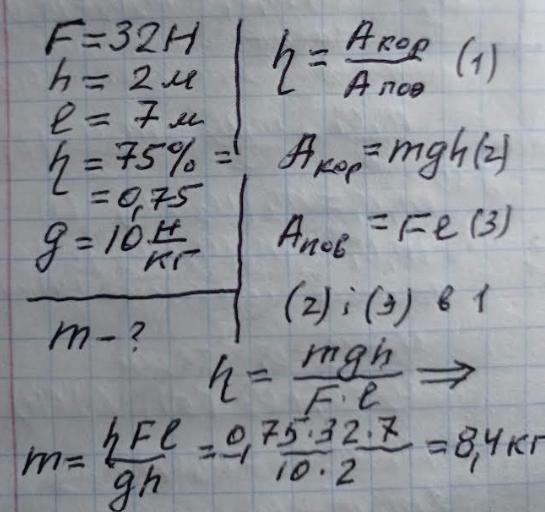 F = 32 Н
h = 2 м
l = 7 м
η = 75% =
= 0,75
g = 10 Н/кг
m - ?
η = Aкор/Aпов (1)
Aкор = mgh (2)
Aпов = Fl (3)
(2) і (3) в 1
η = mgh/F·l ⇒
m = ηFl/gh = 0,75·32·7/10·2 = 8,4 кг